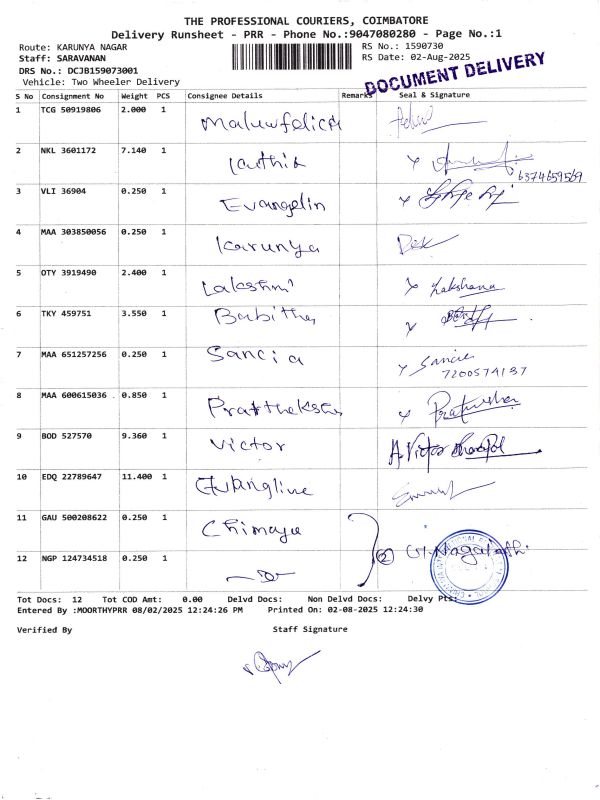 THE PROFESSIONAL COURIERS, COIMBATORE
Delivery Runsheet - PRR - Phone No.:9047080280 - Page No.:1
Route: KARUNYA NAGAR RS No.: 1590730
Staff: SARAVANAN RS Date: 02-Aug-2025
DRS No.: DCJB159073001
Vehicle: Two Wheeler Delivery
DOCUMENT DELIVERY
S No Consignment No Weight PCS Consignee Details Remarks Seal & Signature
1 TCG 50919806 2.000 1
2 NKL 3601172 7.140 1
6374659569
3 VLI 36904 0.250 1 Evangelin
4 MAA 303850056 0.250 1 Karunya
5 OTY 3919490 2.400 1 Lakshmi Lakshana
6 TKY 459751 3.550 1 Babitha
7 MAA 651257256 0.250 1 Sancia Sancia
7200574137
8 MAA 600615036 0.850 1
9 BOD 527570 9.360 1 Victor A. Victor
10 EDQ 22789647 11.400 1 Evangline
11 GAU 500208622 0.250 1 Chimaya
12 NGP 124734518 0.250 1 2
Tot Docs: 12 Tot COD Amt: 0.00 Delvd Docs: Non Delvd Docs: Delvy Pts:
Entered By :MOORTHYPRR 08/02/2025 12:24:26 PM Printed On: 02-08-2025 12:24:30
Verified By Staff Signature